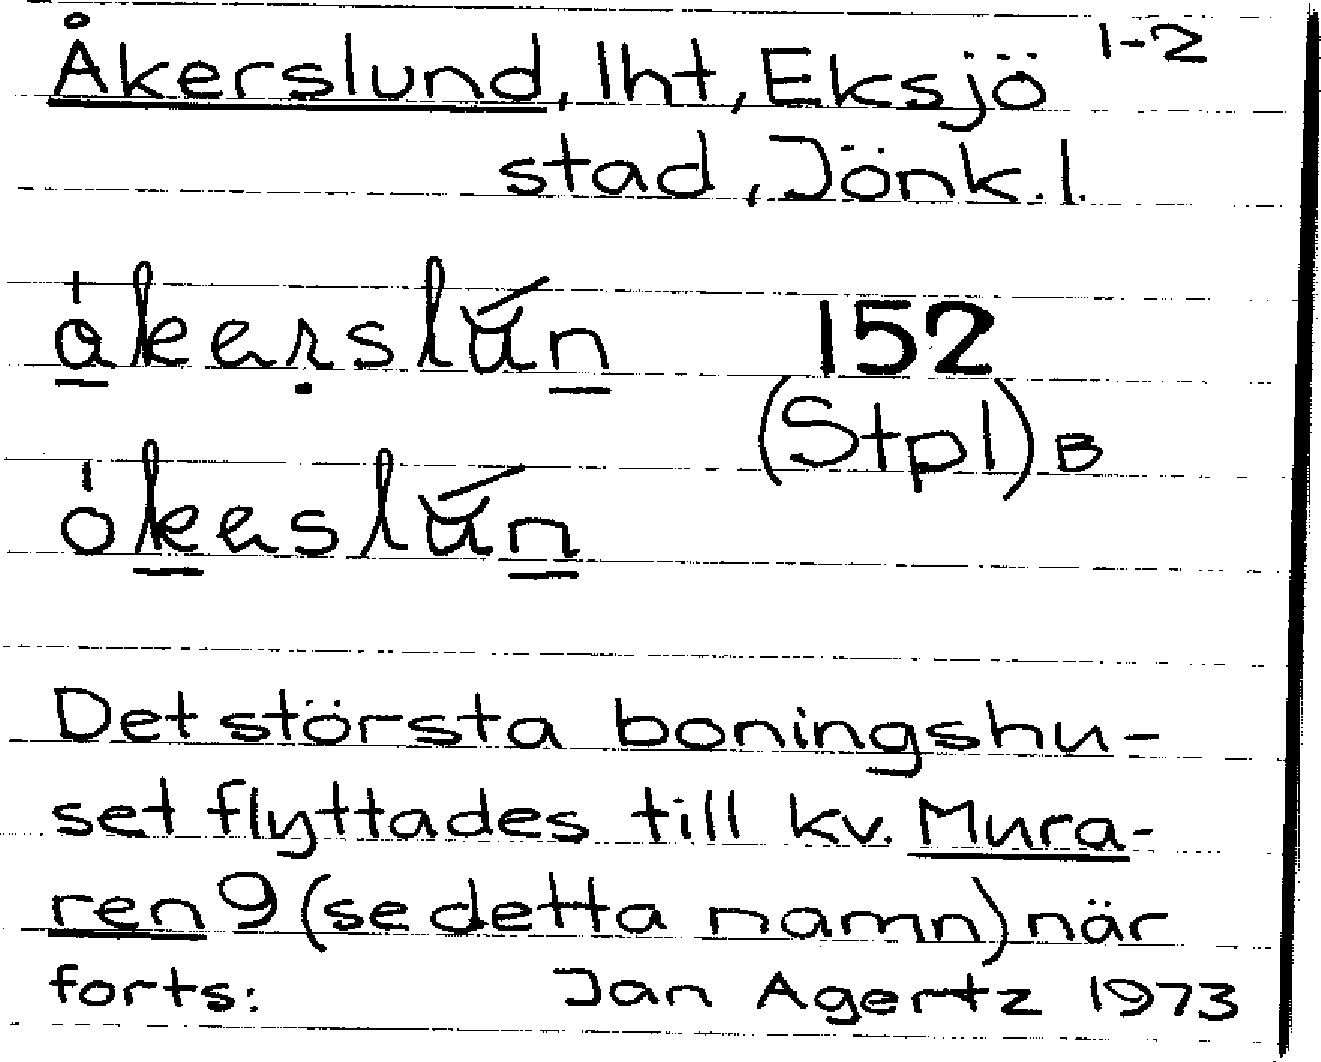 Åkerslund, lht, Eksjö 1-2
stad, Jönk.l.
åkerslún 152
(Stpl) B
ókeslún
Det största boningshu-
set flyttades till kv. Mura-
ren 9 (se detta namn) när
forts: Jan Agertz 1973